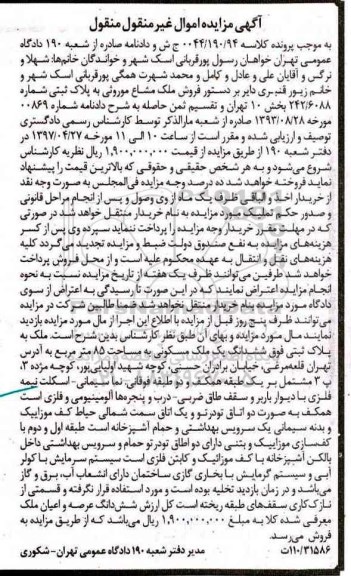 آگهی مزایده اموال غیرمنقول منقول
به موجب پرونده کلاسه ۰۰۴۴/۱۹۰/۹۴ ج ش و دادنامه صادره از شعبه ۱۹۰ دادگاه
عمومی تهران خواهان رسول پورقربانی اسک شهر و خواندگان خانم‌ها: شهلا و
نرگس و آقایان علی و عادل و کامل و محمد شهرت همگی پورقربانی اسک شهر و
خانم زیور قنبری دایر بر دستور فروش ملک مشاع موروثی به پلاک ثبتی شماره
۲۴۲/۶۰۸۸ بخش ۱۰ تهران و تقسیم ثمن حاصله به شرح دادنامه شماره ۰۰۸۶۹
مورخه ۱۳۹۳/۰۸/۲۸ صادره از شعبه مارالذکر توسط کارشناس رسمی دادگستری
توصیف و ارزیابی شده و مقرر است از ساعت ۱۰ الی ۱۱ مورخه ۱۳۹۷/۰۴/۲۷ در
دفتر شعبه ۱۹۰ از طریق مزایده از قیمت ۱,۹۰۰,۰۰۰,۰۰۰ ریال نظریه کارشناس
شروع می‌شود و به هر شخص حقیقی و حقوقی که بالاترین قیمت را پیشنهاد
نماید فروخته خواهد شد ده درصد وجه مزایده فی‌المجلس به صورت وجه نقد
از خریدار اخذ و الباقی ظرف یک ماه از وی وصول و پس از انجام مراحل قانونی
و صدور حکم تملیک مورد مزایده به نام خریدار منتقل خواهد شد در صورتی
که در مهلت مقرر خریدار وجه مزایده را پرداخت ننماید سپرده وی پس از کسر
هزینه‌های مزایده به نفع صندوق دولت ضبط و مزایده تجدید می‌گردد کلیه
هزینه‌های نقل و انتقال به عهده محکوم علیه است و از محل فروش پرداخت
خواهد شد طرفین می‌توانند ظرف یک هفته از تاریخ مزایده نسبت به نحوه
انجام مزایده اعتراض نمایند که در این صورت تا رسیدگی به اعتراض از سوی
دادگاه مورد مزایده بنام خریدار منتقل نخواهد شد ضمنا طالبین شرکت در مزایده
می‌توانند ظرف پنج روز قبل از مزایده با اطلاع این اجرا از مال مورد مزایده بازدید
نمایند مال مورد مزایده و بهای آن طبق نظر کارشناس بدین شرح است. ملک به
پلاک ثبتی فوق ششدانگ یک ملک مسکونی به مساحت ۸۵ متر مربع به آدرس
تهران قلعه‌مرغی، خیابان برادران حسنی، کوچه شهید اولیایی‌پور، کوچه مژده ۳،
پ ۳ مشتمل بر یک طبقه همکف و دو طبقه فوقانی: نما سیمانی- اسکلت نیمه
فلزی با دیوار باربر و سقف طاق ضربی- درب و پنجره‌ها آلومینیومی و فلزی است
همکف به صورت دو اتاق تودرتو و یک اتاق سمت شمالی حیاط کف موزاییک
و بدنه سیمانی یک سرویس بهداشتی و حمام آشپزخانه است طبقه اول و دوم با
کف‌سازی موزاییک و بتنی دارای دو اطاق تودرتو حمام و سرویس بهداشتی داخل
بالکن آشپزخانه با کف موزائیک و کابنت فلزی است سیستم سرمایش با کولر
آبی و سیستم گرمایش با بخاری گازی ساختمان دارای انشعاب آب، برق و گاز
می‌باشد و در زمان بازدید تخلیه بوده است و مورد استفاده قرار نگرفته و قسمتی از
نازک‌کاری سقف‌های طبقه ریخته است کل ارزش شش‌دانگ عرصه و اعیان ملک
معرفی شده کلا به مبلغ ۱,۹۰۰,۰۰۰,۰۰۰ ریال می‌باشد که از طریق مزایده به
فروش می‌رسد.
۱۱۰/۳۱۵۸۶ت مدیر دفتر شعبه ۱۹۰ دادگاه عمومی تهران- شکوری